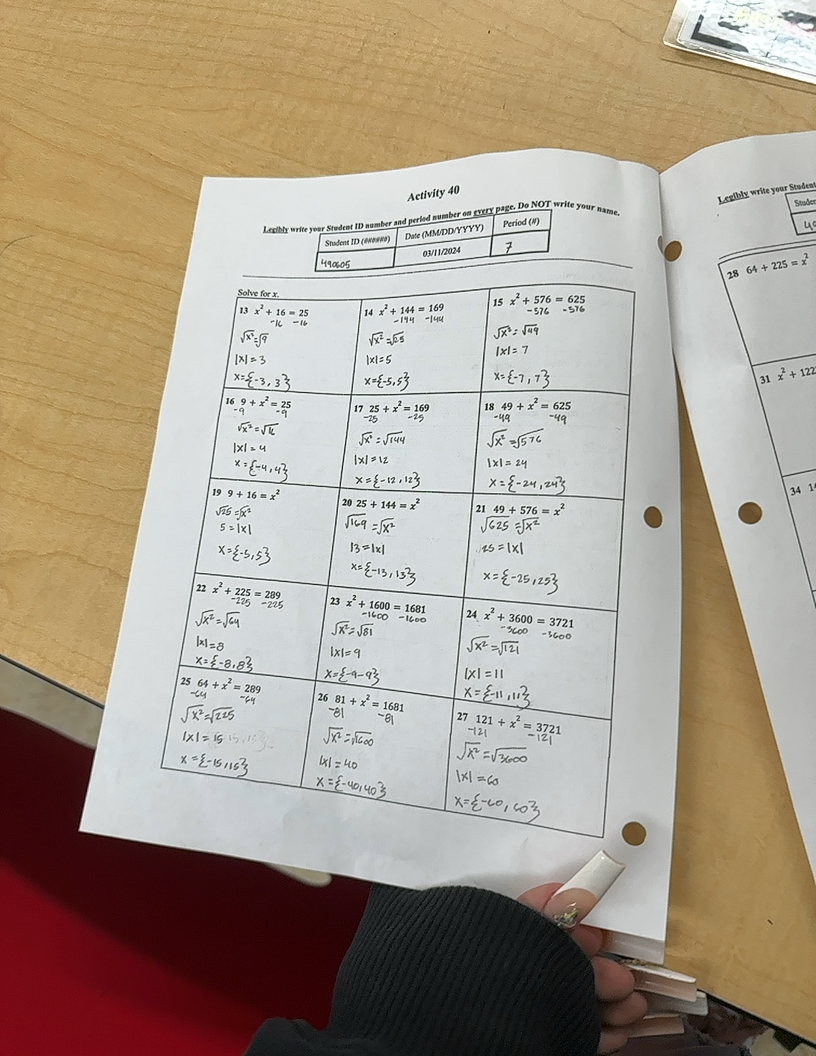 Activity 40
Legibly write your Student ID number and period number on every page. Do NOT write your name.
Student ID (######) Date (MM/DD/YYYY) Period (#)
490605 03/11/2024 7
Solve for x.
13 x² + 16 = 25
-16 -16
√x²=√9
|x| = 3
x={-3, 3}
14 x² + 144 = 169
-144 -144
√x²=√25
|x|=5
x={-5,5}
15 x² + 576 = 625
-576 -576
√x²=√49
|x|= 7
x={-7, 7}
16 9 + x² = 25
-9 -9
√x²=√16
|x|= 4
x={-4,4}
17 25 + x² = 169
-25 -25
√x²=√144
|x|=12
x={-12,12}
18 49 + x² = 625
-49 -49
√x²=√576
|x|= 24
x={-24,24}
19 9 + 16 = x²
√25=√x²
5=|x|
x={-5,5}
20 25 + 144 = x²
√169=√x²
13=|x|
x={-13, 13}
21 49 + 576 = x²
√625=√x²
25=|x|
x={-25,25}
22 x² + 225 = 289
-225 -225
√x²=√64
|x|=8
x={-8,8}
23 x² + 1600 = 1681
-1600 -1600
√x²=√81
|x|=9
x={-9-9}
24 x² + 3600 = 3721
-3600 -3600
√x²=√121
|x| = 11
x={-11,11}
25 64 + x² = 289
-64 -64
√x²=√225
|x|= 15
x={-15,15}
26 81 + x² = 1681
-81 -81
√x²=√1600
|x| = 40
x={-40,40}
27 121 + x² = 3721
-121 -121
√x²=√3600
|x|=60
x={-60,60}
Legibly write your Student
28 64 + 225 = x²
31 x² + 122
34